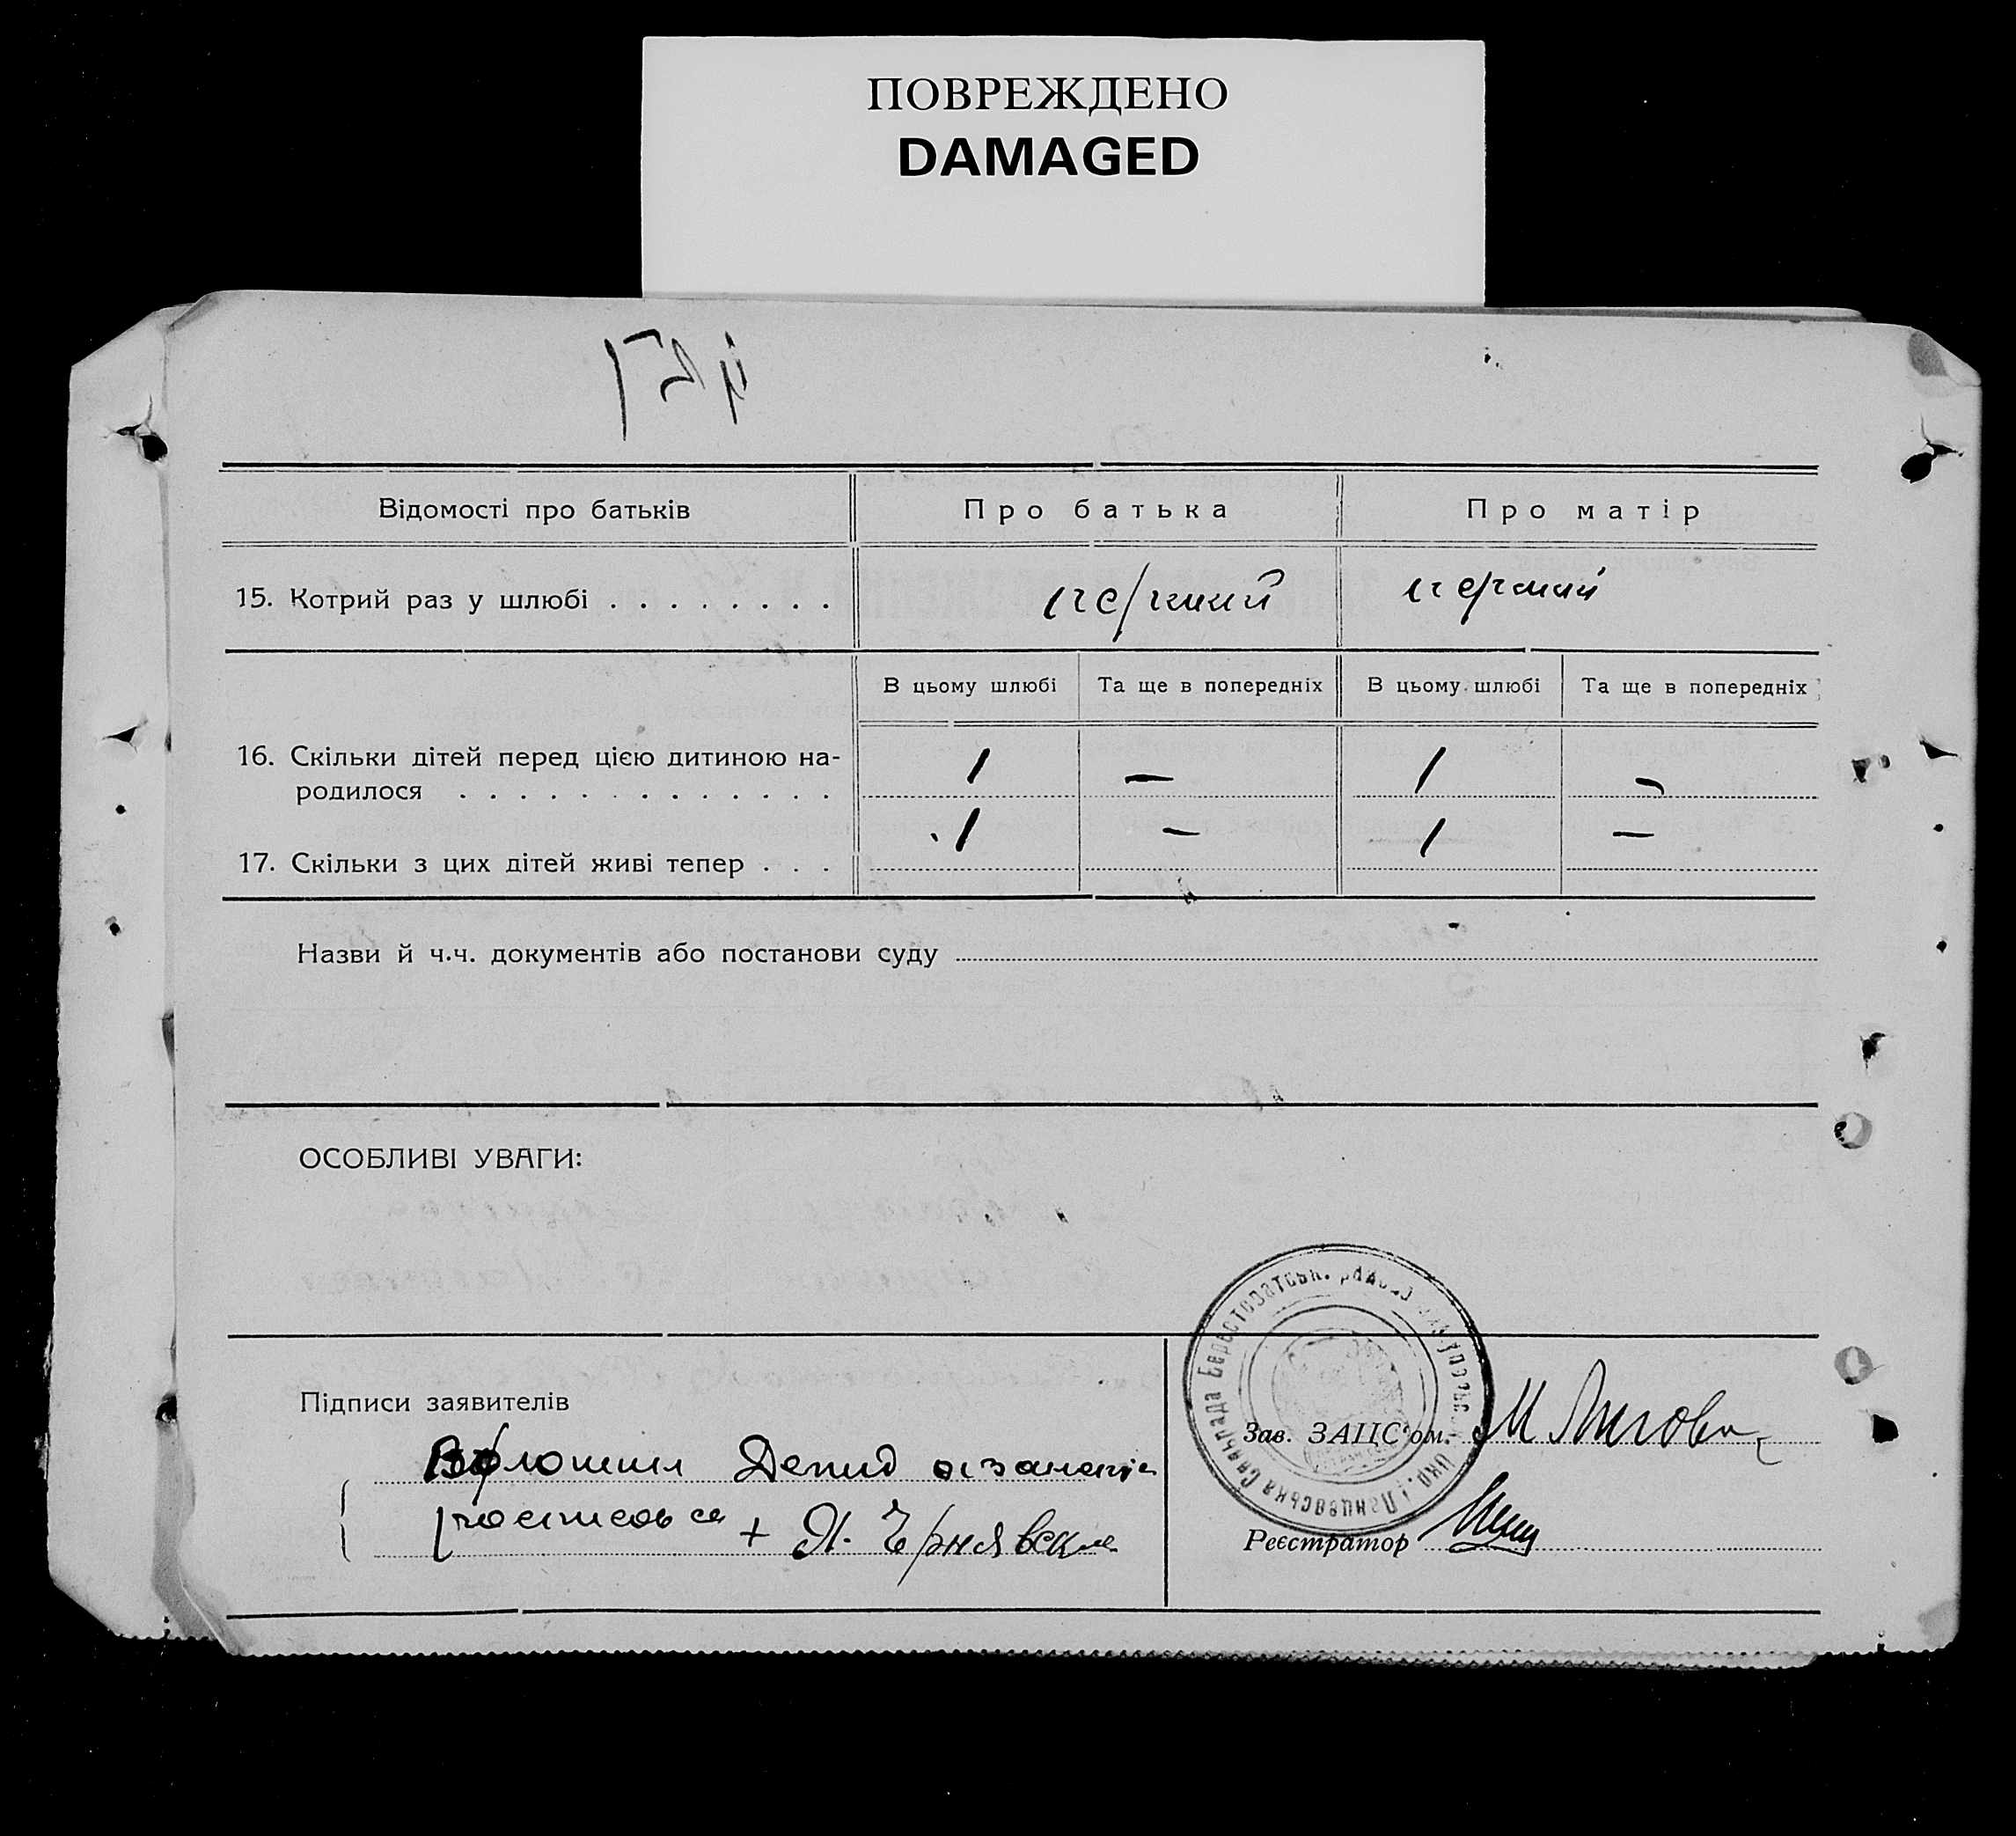 ПОВРЕЖДЕНО
DAMAGED
Відомості про батьків
Про батька
Про матір
15. Котрий раз у шлюбі . . . . . . . .
перший
перший
В цьому шлюбі
Та ще в попередніх
В цьому шлюбі
Та ще в попередніх
16. Скільки дітей перед цією дитиною на-
родилося . . . . . . . . . . . . .
1
—
1
—
17. Скільки з цих дітей живі тепер . . .
1
—
1
—
Назви й ч.ч. документів або постанови суду
ОСОБЛИВІ УВАГИ:
Підписи заявителів
Волошин
+ Я. Чернявский
Зав. ЗАЦС‘ом.
Реєстратор